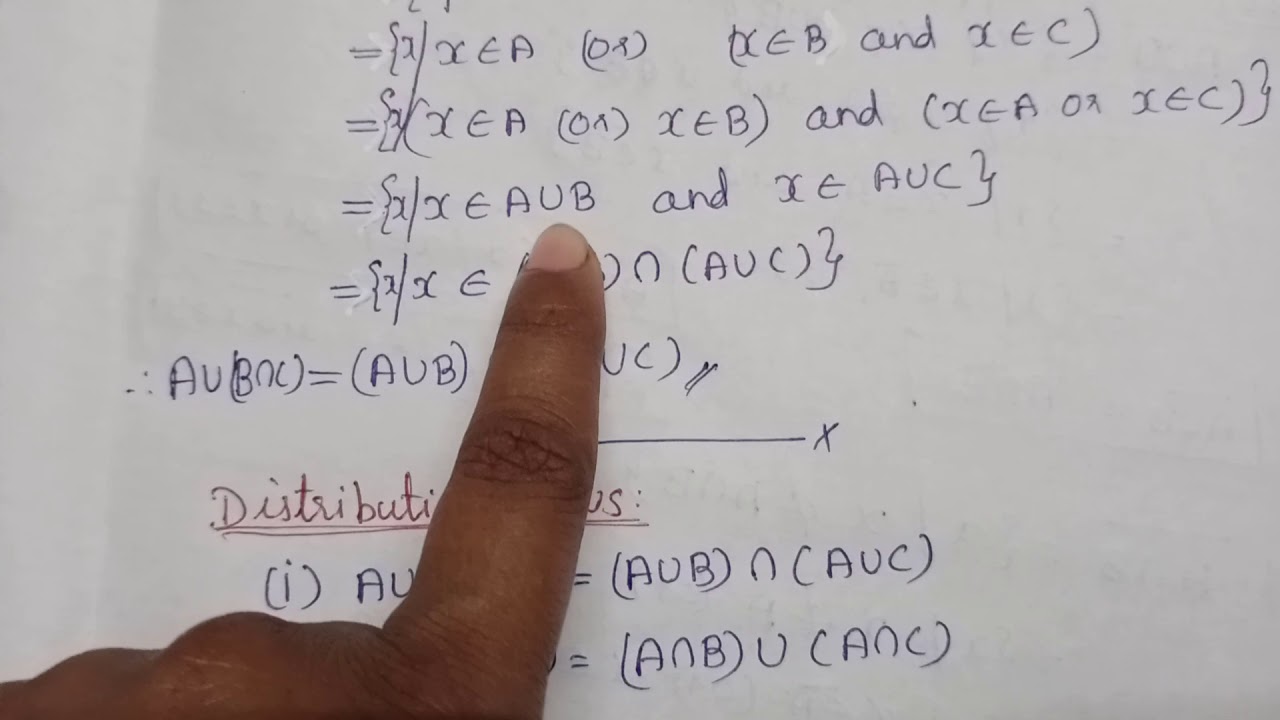 ={x/x∈A (or) (x∈B and x∈C)
={x/(x∈A (or) x∈B) and (x∈A or x∈C)}
={x/x∈A∪B and x∈ A∪C}
={x/x∈ )∩(A∪C)}
∴ A∪(B∩C)=(A∪B) ∪C)
x
Distributi s:
(i) A∪ = (A∪B)∩(A∪C)
= (A∩B)∪(A∩C)